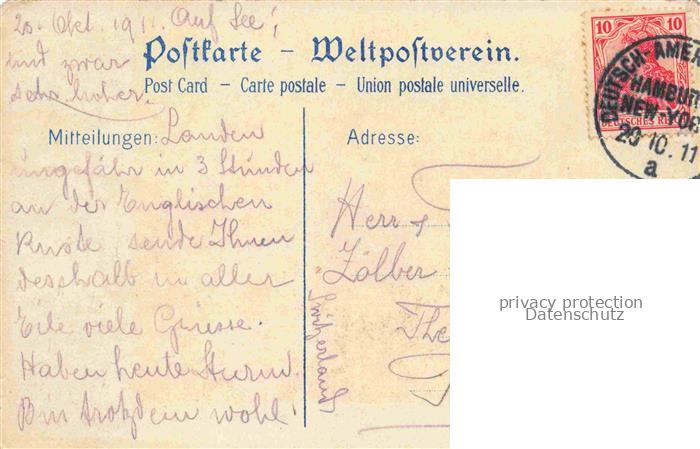 20. Okt. 1911. Auf See,
und zwar
sehr hoher.
Postkarte – Weltpostverein.
Post Card – Carte postale – Union postale universelle.
10 10
DEUTSCHES REICH
DEUTSCH-AMER
HAMBURG
NEW-YOR
20 10. 11
a
Mitteilungen: Landen
ungefähr in 3 Stunden
an der Englischen
Küste sende Ihnen
deshalb in aller
Eile viele Grüsse.
Haben heute Sturm.
Bin trotzdem wohl!
Adresse:
Herr
Zölber
The
Switzerland
privacy protection
Datenschutz